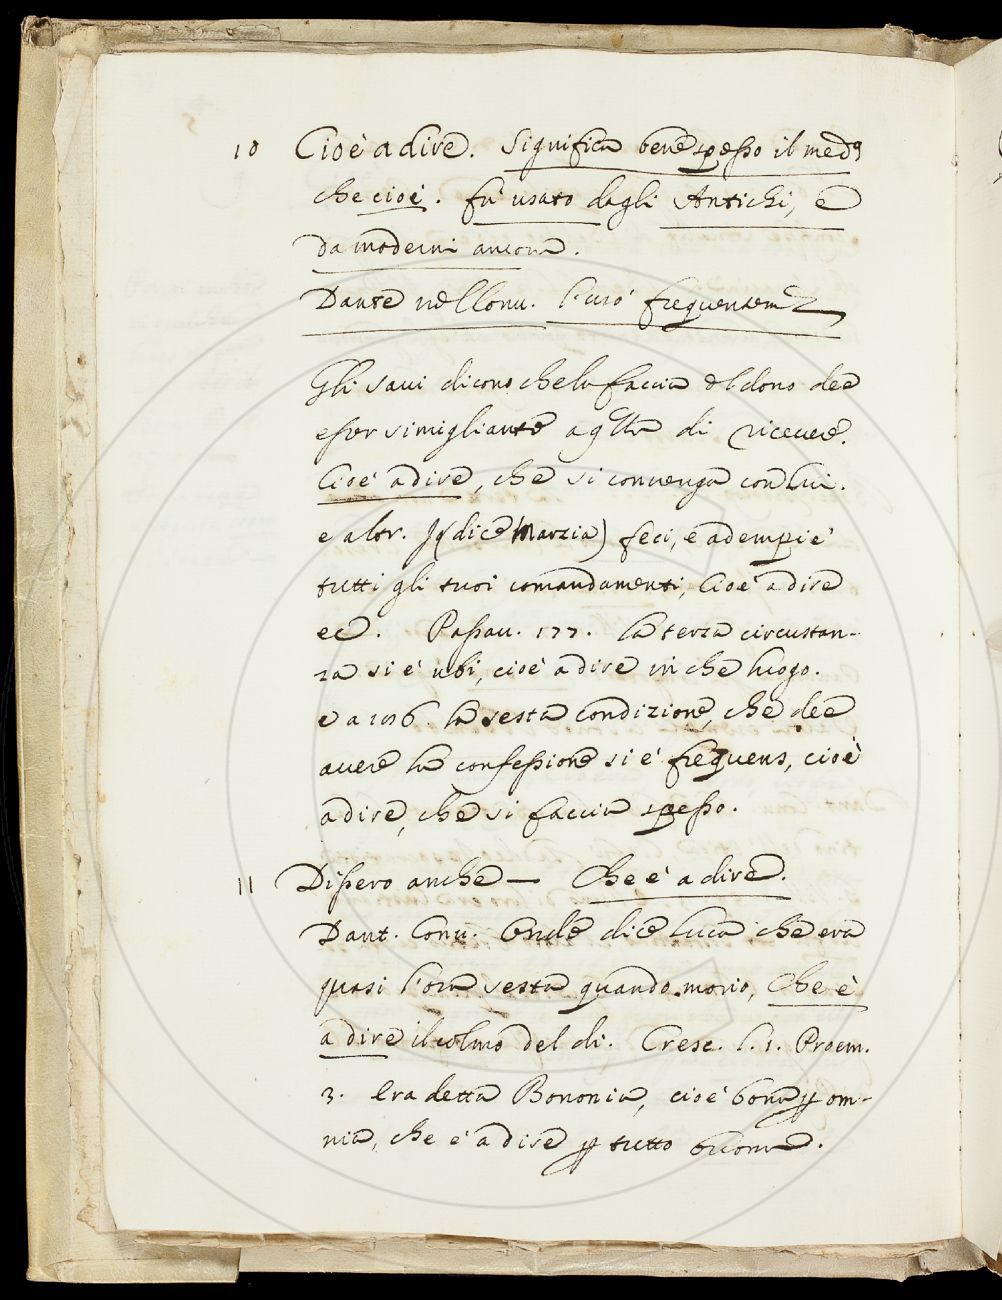 10 Cioè a dire. Significa bene spesso il med.º
che cioè. fu usato dagli Antichi, e
da moderni ancora.
Dante nel Conu. l'usò frequentem.
Gli saui dicono che la faccia del dono dee
esser simigliante a qlla di riceuere.
Cioè a dire, che si conuenga con lui.
e altr. Iò (dice Marzia) feci, e adempiè
tutti gli tuoi comandamenti, Cioè a dire
ec. Passau. 177. la terza circustan-
za si è ubi, cioè a dire in che luogo.
e a 196. la sesta condizione, che dee
auere la confessione si è frequens, cioè
a dire, che si faccia spesso.
11 Dissero anche — Che è a dire.
Dant. Conu. Onde dice Luca che era
quasi l'ora sesta quando morio, Che è
a dire il colmo del dì. Cresc. l. 1. Proem.
3. Era detta Bononia, cioè bona p om-
nia, che è a dire p tutto buona.